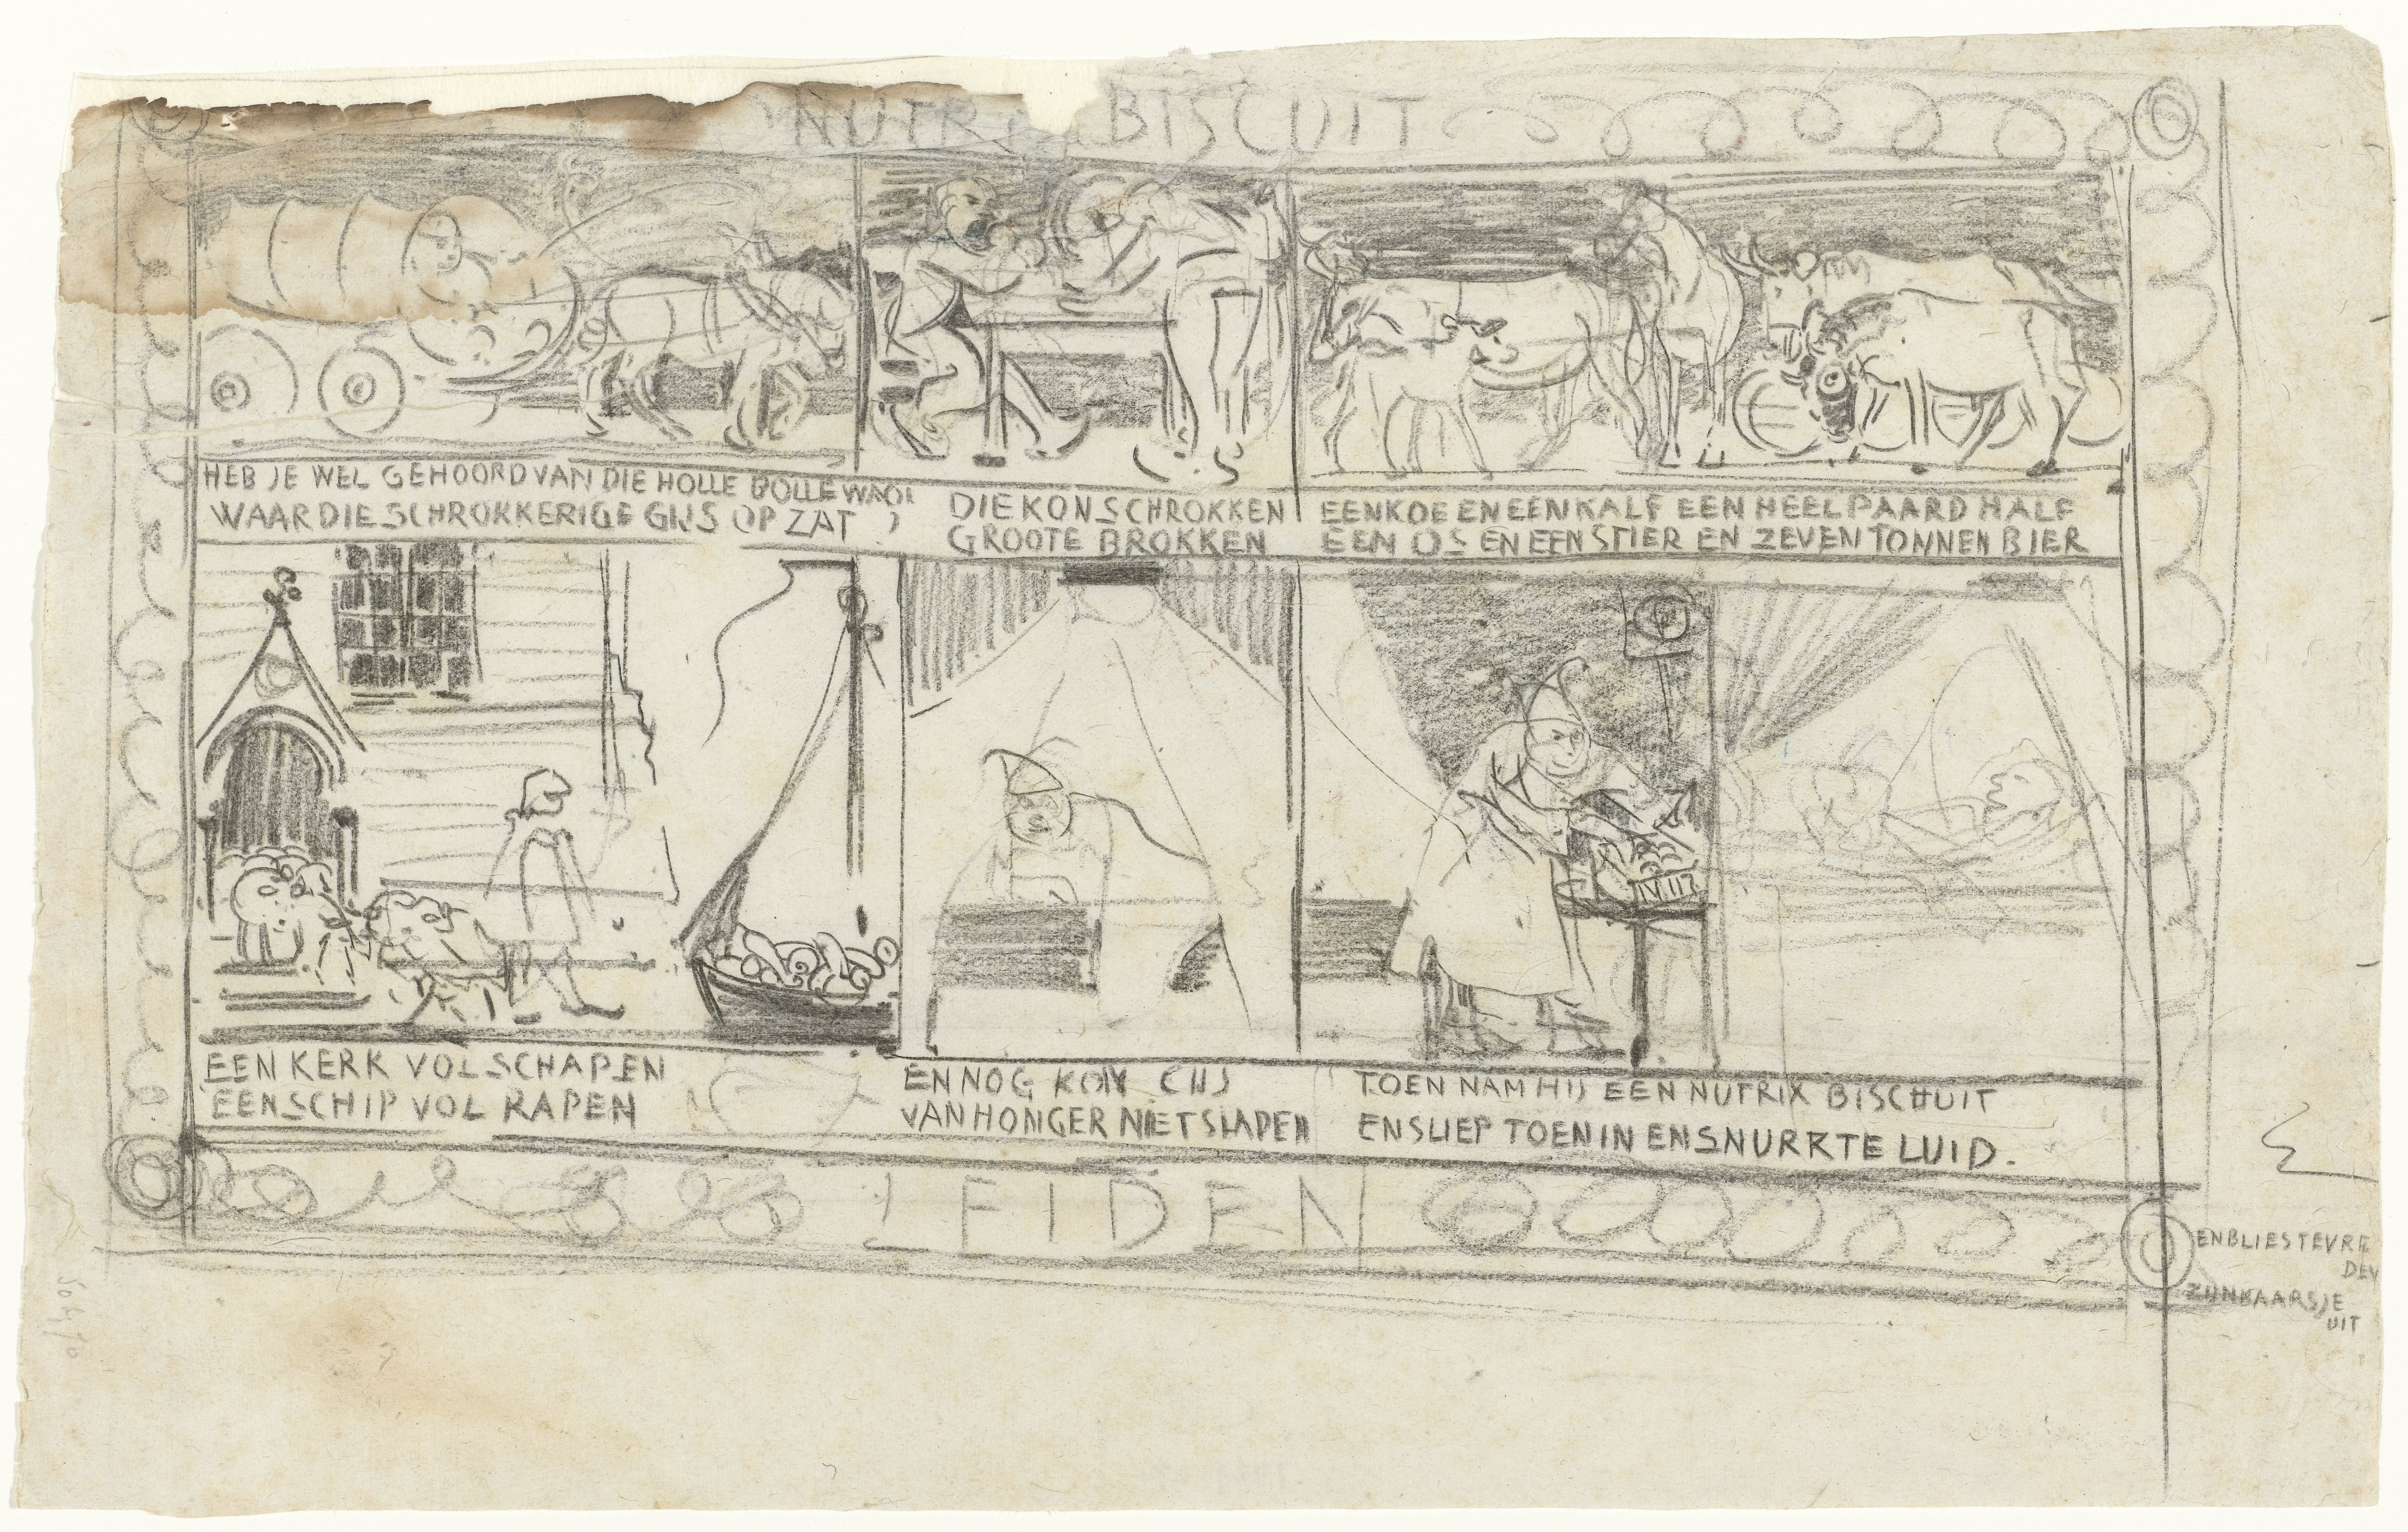 NUTRIX BISCUIT
HEB JE WEL GEHOORD VAN DIE HOLLE BOLLE WAG
WAAR DIE SCHROKKERIGE GIJS OP ZAT
DIE KON SCHROKKEN
GROOTE BROKKEN
EEN KOE EN EEN KALF EEN HEEL PAARD HALF
EEN OS EN EEN STIER EN ZEVEN TONNEN BIER
EEN KERK VOL SCHAPEN
EEN SCHIP VOL RAPEN
EN NOG KON HIJ
VAN HONGER NIET SLAPEN
TOEN NAM HIJ EEN NUTRIX BISCHUIT
EN SLIEP TOEN IN EN SNURRTE LUID.
LEIDEN
EN BLIES TEVRE
DEN
ZIJN KAARSJE
UIT